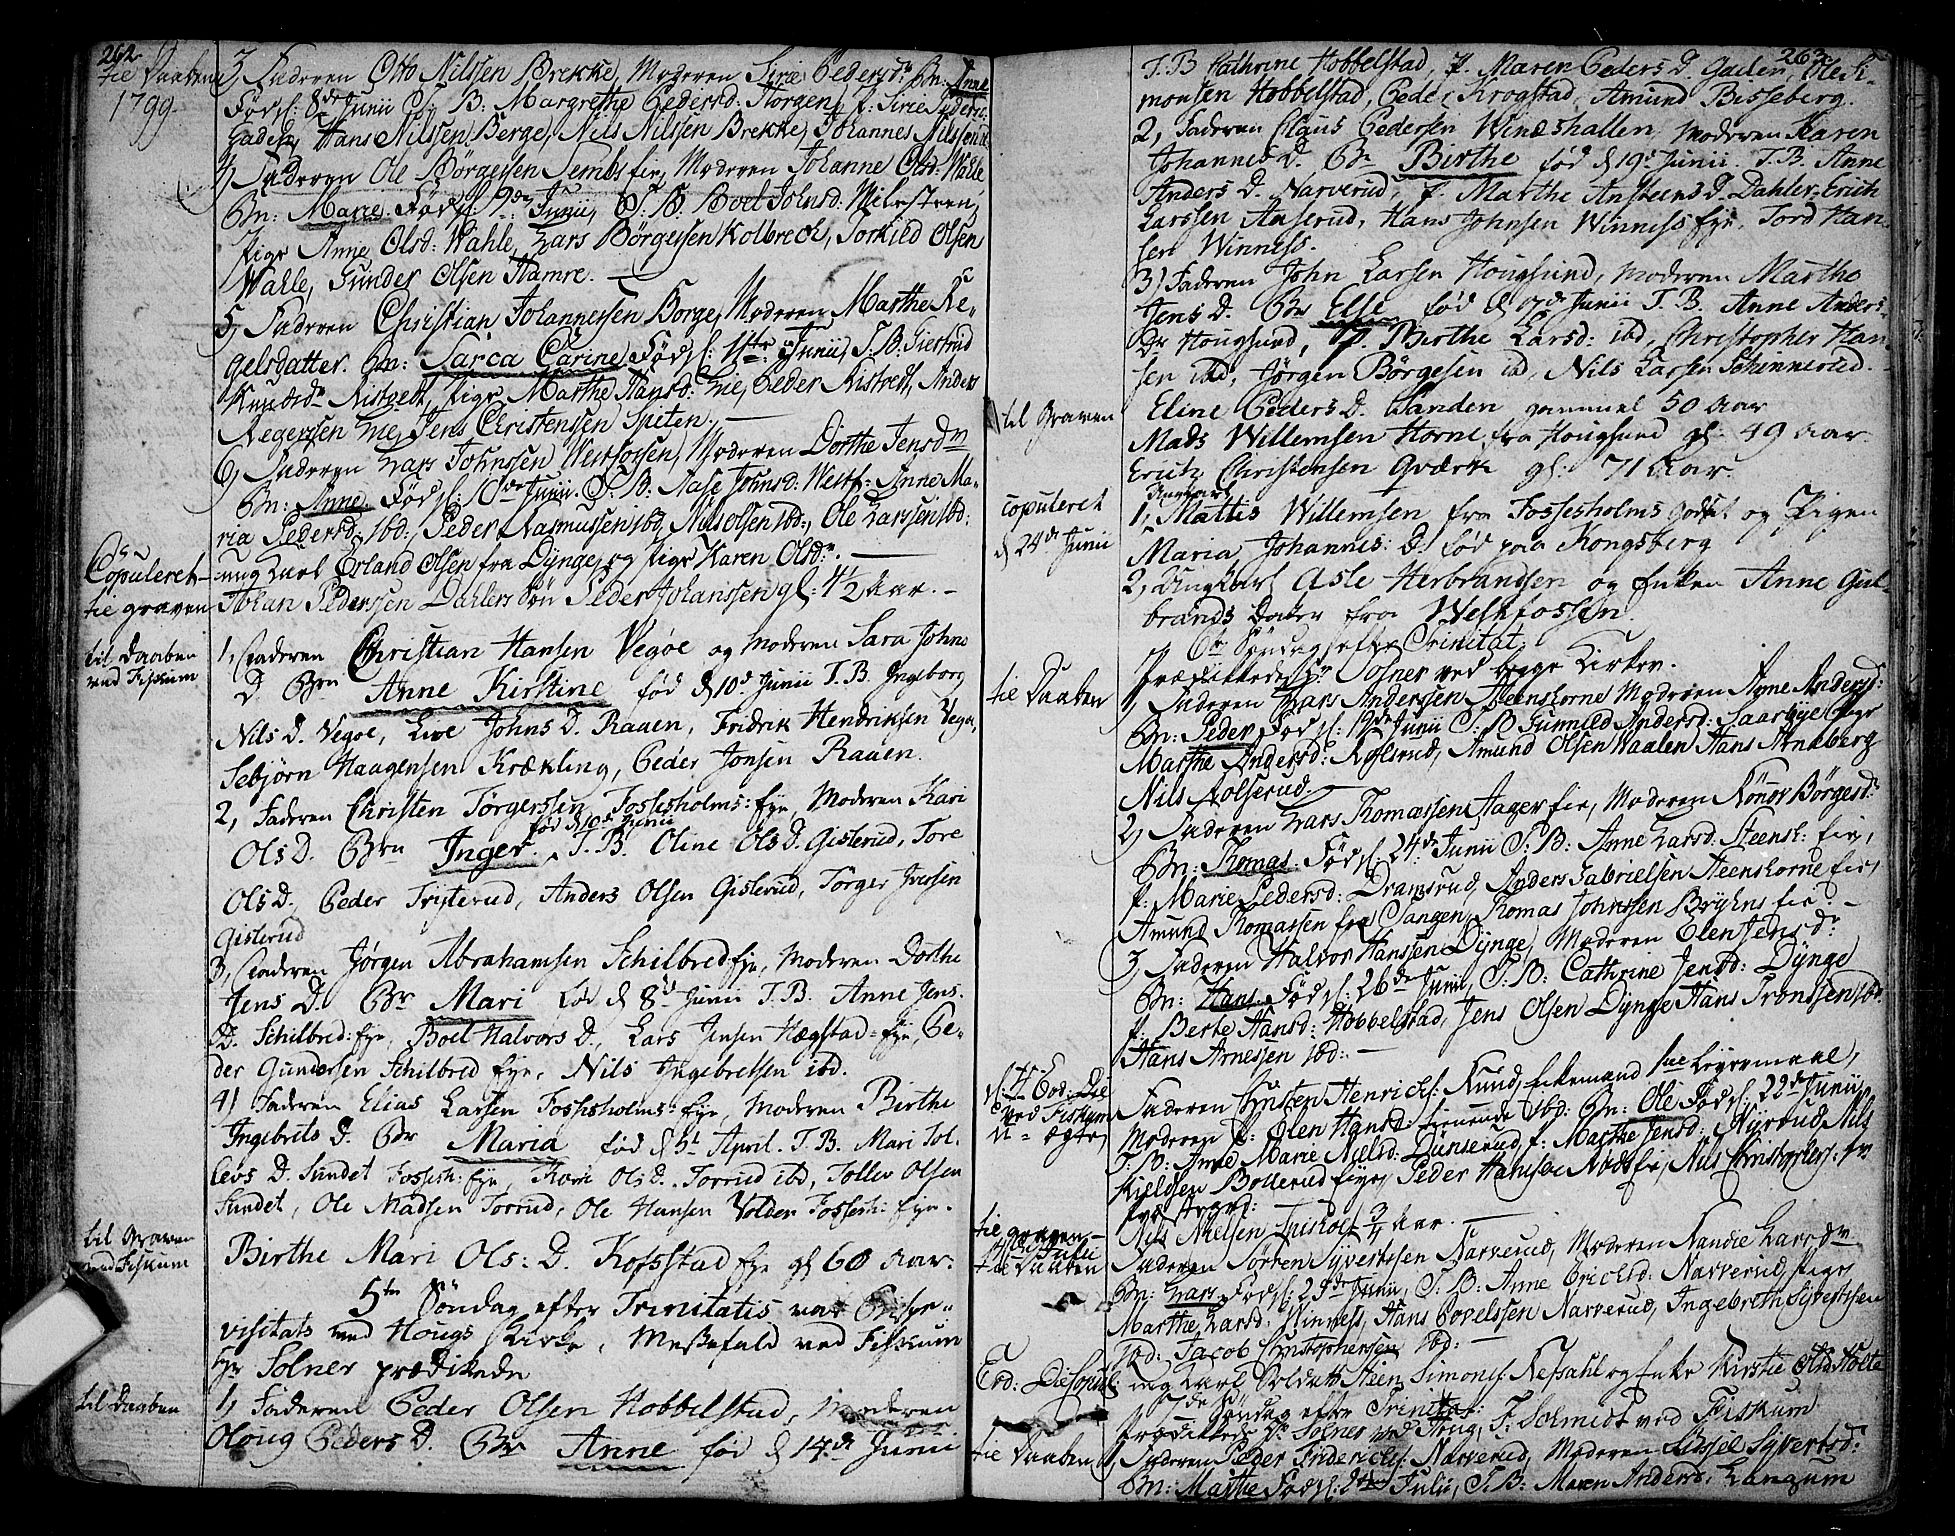 262
til Daaben
1799.
3, Faderen Otto Nilssen Brekke, Moderen Sirie Pedersdr Bn: Anne
Fødsl: 8de Junii T. B: Margrethe Pedersd: Horgen, f. Sirie Peders:
Gaden, Hans Nilssen Berge, Nils Nilssen Brekke, Johannes Nilssen
4, Faderen Ole Börgessen Sembs eie, Moderen Johanne Olsd: Wahle,
Bn: Marie. Fødsl. 9de Junii, T. B. Boel Johnsd: Milesteen,
Pige Anne Olsd: Wahle, Lars Börgessen Kolbrech, Torkild Olsen
Wahle, Gunder Olsen Hamre. —
5, Faderen Christian Johannessen Borge, Moderen Marthe Re-
gelsdatter. Bn: Sarca Carine Fødsl: 11te Junii, T. B. Siertrud
Knudsdr Ristvedt, Pige Marthe Hansd: Lie, Peder Ristvedt, Anders
Regerssen Lie, Jens Christenssen Spiten. —
6, Faderen Lars Johnssen Westfossen, Moderen Dorthe Jensdr
Bn: Anne Fødsl: 10de Junii. T. B: Aase Johnsd: Westf: Anne Ma-
ria Pedersd: ibd, Peder Rasmussen ibd, Nils Olsen ibd:, Ole Larssen ibd:
Copuleret
ung Karl Erland Olsen fra Dynge, og Pige Karen Olsdr. —
til graven
Johan Pederssen Dahlers Søn Peder Johanssen gl: 4½ Aar. —
til Daaben
ved Fiskum
1, Faderen Christian Hansen Vegøe og Moderen Sara Johns
D. Brn Anne Kirstine fød d 10d Junii T. B. Ingeborg
Nils D. Vegøe, Live Johns D. Raaen, Fridrik Hendriksen Vegøe,
Sebjørn Haagensen Krækling, Peder Jonsen Raaen.
2, Faderen Christen Törgerssen Fossesholms: Eye, Moderen Kari
fød d 10de Junii
Ols D. Brn Inger. T. B. Oline Ols D. Gisterud, Tore
Ols D. Peder Trysterud, Anders Olsen Gisterud, Törger Iversen
Gisterud
3, Faderen Jørgen Abrahamsen Schilbred Eye, Moderen Dorthe
Jens D. Br Mari fød d 8d Junii T. B. Anne Jens
D. Schilbred: Eye, Boel Halvors D., Lars Jensen Hægstad: Eye, Pe-
der Gundersen Schilbred Eye, Nils Ingebretsen ibd.
4) Faderen Elias Larsen Fossesholms: Eye, Moderen Birthe
Ingebrits D. Br Maria fød d 5t April. T. B. Mari Tol-
levs D. Sundet Fossesh: Eye, Kari Ols D. Torrud ibd, Tollev Olsen
Sundet, Ole Madsen Torrud, Ole Hansen Volden Fossesh: Eye.
til Graven
ved Fiskum
Birthe Mari Ols: D. Kopsstad Eye gl 60 Aar:
5te Søndag efter Trinitatis var Bispe-
visitats ved Hougs Kirke, Messefald ved Fiskum
Hr Solner prædikede
til Daaben
1, Faderen Peder Olsen Hobbelstad, Moderen
Oloug Peders D. Br Anne fød d 14de Junii
263
T. B Cathrine Hobbelstad, P. Maren Peders D. Gaden, Ole Si-
monsen Hobbelstad, Peder Krogstad, Amund Bisseberg.
2, Faderen Claus Pedersen Windshallen, Moderen Karen
Johannes D. Br Birthe fød d 19d Junii. T. B. Anne
Anders D. Narverud, P. Marthe Ansteens D. Dahler, Erich
Larssen Aaserud, Hans Johnsen Winness Eye, Tord Han-
sen Winness.
3) Faderen John Larsen Hougsund, Moderen Marthe
Jens D. Br Else fød d 17d Junii T. B. Anne Anders
Dr Hougsund, P. Birthe Larsd: ibd, Christopher Han-
sen ibd, Jørgen Börgesen ibd, Nils Larsen Schinnerud.
til Graven
Eline Peders D. Sanden gammel 50 Aar
Mads Willemsen Horne fra Hougsund gl: 49 Aar.
Erich Christensen Qværk gl: 71 Aar.
copuleret
d 24de Junii
Ungkarl
1, Mattis Willemsen fra Fossesholms Gods et og Pigen
Maria Johannes: D. fød paa Kongsberg
2, Ungkarl Asle Herbrandsen og Enken Anne Gul-
brands Dater fra Westfossen.
6te Søndag efter Trinitat:
Prædikede Hr Solner ved begge Kirker.
til Daaben
1, Faderen Lars Andersen Steenshorne Moderen Anne Andersd:
Bn: Peder Fødsl: 19de Junii T. B Gunild Andersd: Saarbye, Pige
Marthe Andersd: Kolsrud, Amund Olsen Waalen, Hans Arneberg
Nils Kolserud. —
2, Faderen Lars Thomassen Hager eie, Moderen Rønov Börgesdr
Bn: Thomas. Fødsl 24de Junii T. B: Anne Larsd: Steensh: eie,
P. Marie Pedersd: Dramsrud, Anders Gabrielsen Steenshorne eie,
Amund Thomassen fra Tangen, Thomas Johnssen Bryhns eie. —
3, Faderen Halvor Hanssen Dynge, Moderen Elen Jensdr
Bn: Hans Fødsl: 26de Junii, T. B: Cathrine Jensd: Dynge
P. Berte Hansd: Hobbelstad, Jens Olsen Dynge, Hans Tronssen ibd.
Hans Arnessen ibd: —
ved Fiskum
u-ægte
Faderen Christen Henrichs: Kund, Enkemand 1ste Leyermaal,
Moderen P. Elen Hansd: tienende ibd: Bn: Ole Fødsl: 22de Junii,
T. B: Anne Marie Nielsd: Dunserud, P. Marthe Jensd: Nyrud, Nils
Kieldsen Bollerud Eye, Peder Hansen eie, Nils Christophers:
til graven
Nils Nielsen Spiskolt ¾ Aar. —
til Daaben
Faderen Sörren Syvertsen Narverud, Moderen Randie Larsdr
Bn: Lars Fødsl: 29de Junii, T. B: Anne Erichsd: Narverud, Pige
Marthe Larsd: Winness, Hans Povelssen Narverud, Ingebreth Syvertsen
ibd: Jacob Christophersen ibd: —
Copul:
ung Karl Soldatt Steen Simons: Refsahl og Enke Kirstie Olsd Holte
7de Søndag efter Trinitat:
Prædikede Hr Solner ved Houg, F: Schmidt ved Fiskum
til Daaben
1, Faderen Peder Friderichs: Narverud, Moderen Sidsel Syvertsd:
Bn: Marthe Fødsl: 2den Julii, T. B: Maren Andersd: Langum